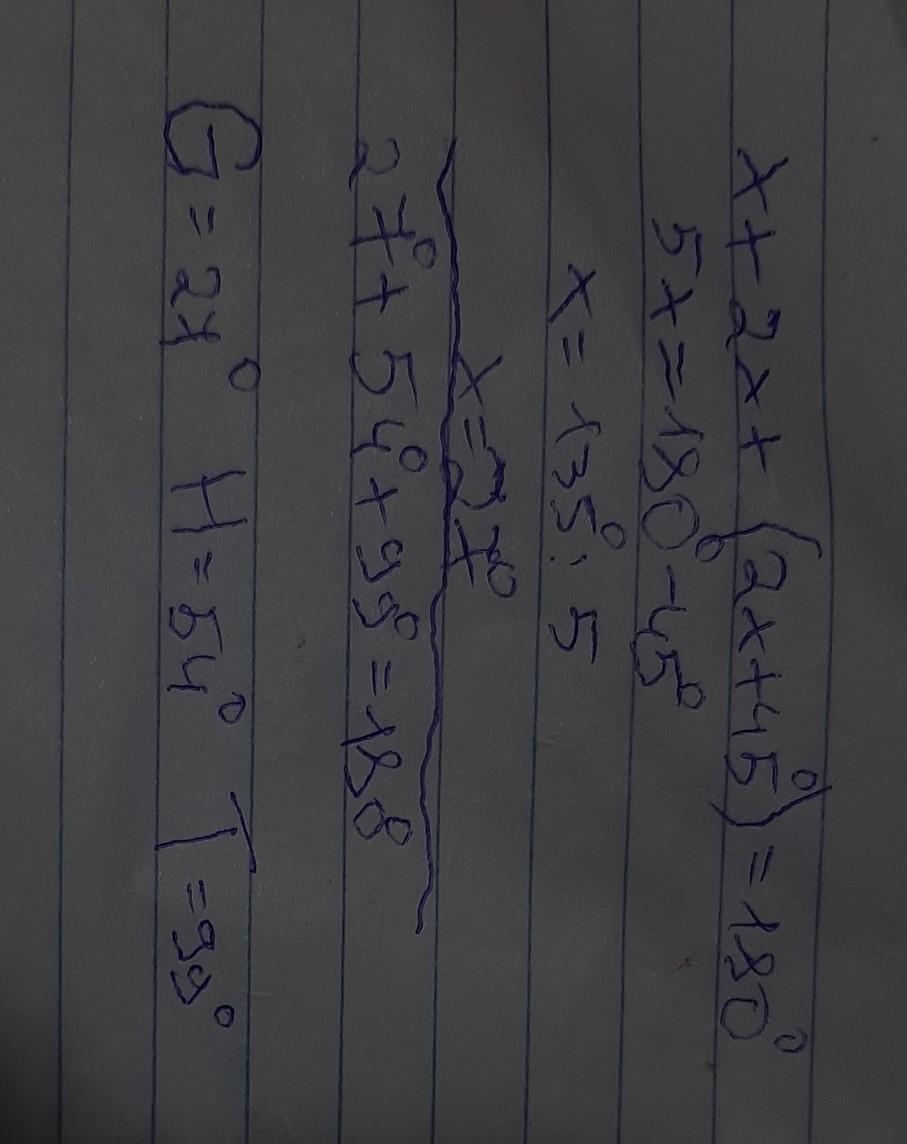 x+2x+(2x+45°)=180°
5x=180°-45°
x=135°:5
x=27°
27°+54°+99°=180°
G=27° H=54° T=99°